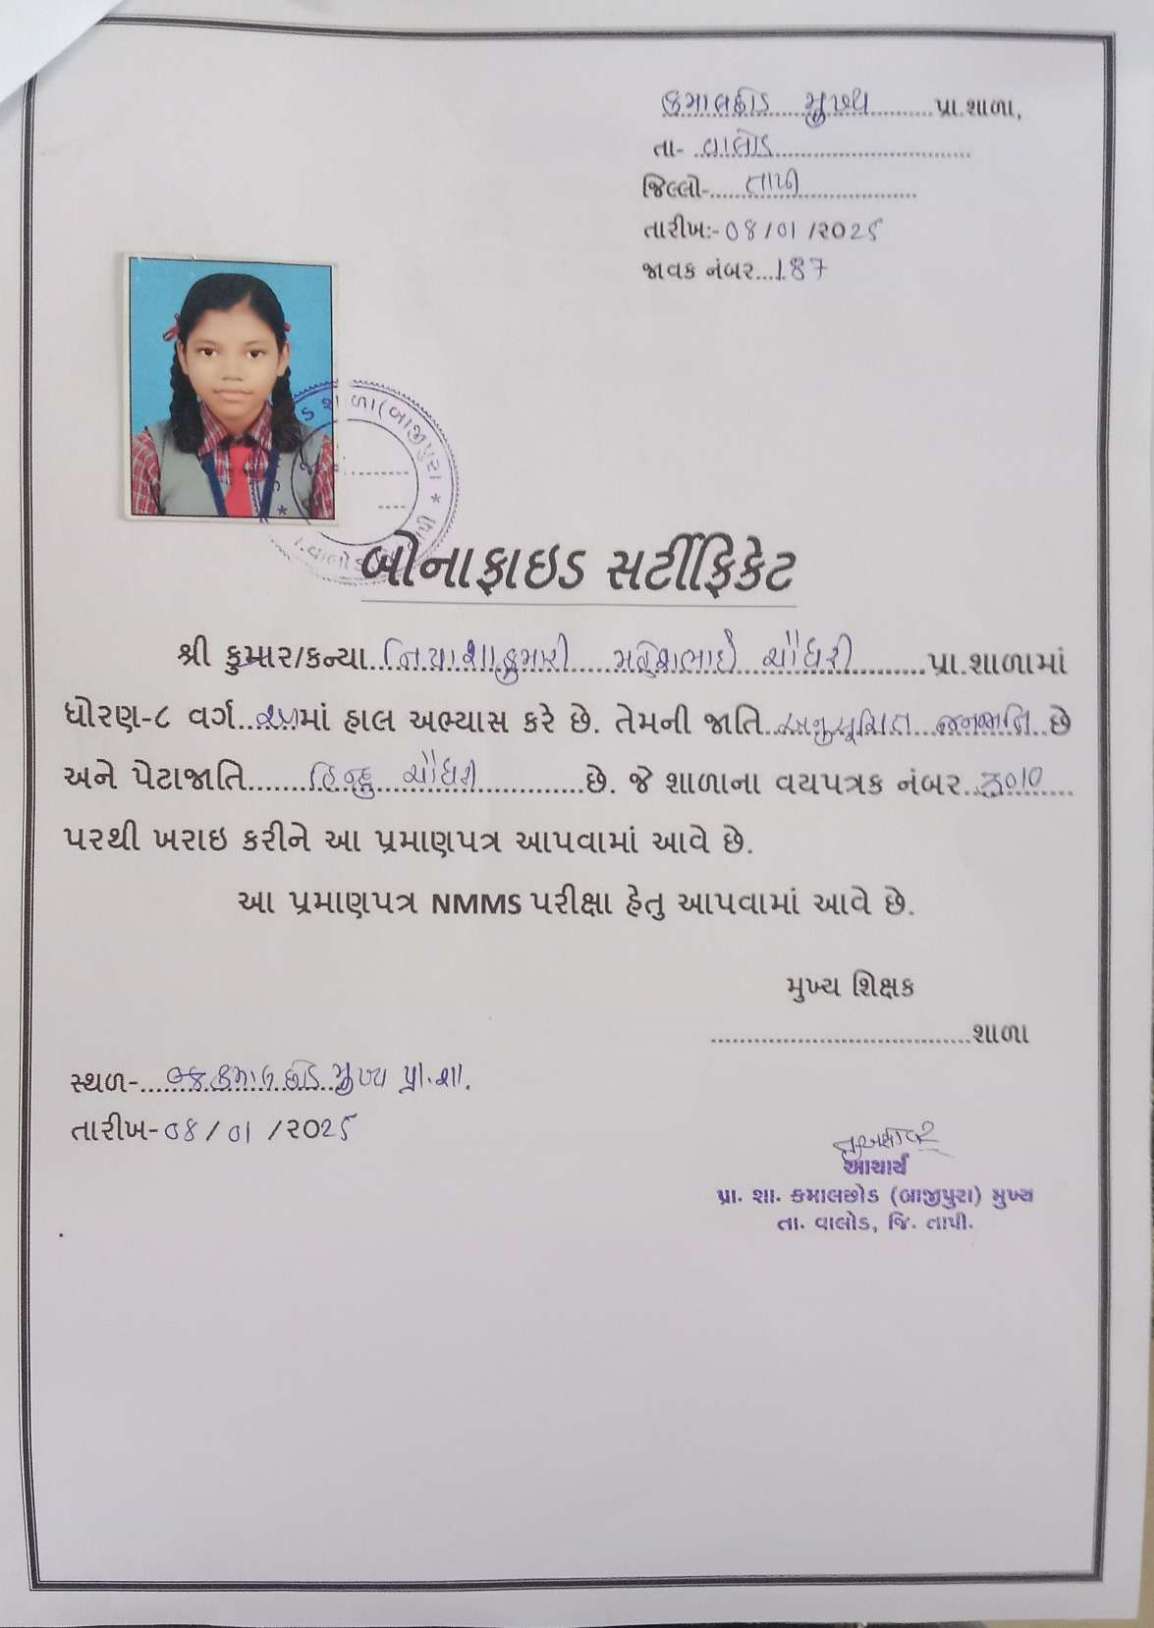 કમાલછોડ મુખ્ય પ્રા.શાળા,
તા- વાલોડ
જિલ્લો- તાપી
તારીખ:- 08/01/૨૦૨૬
જાવક નંબર...187
શાળા (બાજીપુરા) *
બોનાફાઇડ સર્ટીફિકેટ
શ્રી કુમાર/કન્યા..નિયાશાકુમારી મહેશભાઈ ચૌધરી પ્રા.શાળામાં
ધોરણ-૮ વર્ગ માં હાલ અભ્યાસ કરે છે. તેમની જાતિ..અનુસૂચિત જનજાતિ..છે
અને પેટાજાતિ હિન્દુ ચૌધરી છે. જે શાળાના વયપત્રક નંબર..૩૦૧૦
પરથી ખરાઇ કરીને આ પ્રમાણપત્ર આપવામાં આવે છે.
આ પ્રમાણપત્ર NMMS પરીક્ષા હેતુ આપવામાં આવે છે.
મુખ્ય શિક્ષક
શાળા
સ્થળ- કમાલછોડ મુખ્ય પ્રા.શા.
તારીખ-08/01/૨૦૨૬
આચાર્ય
પ્રા. શા. કમાલછોડ (બાજીપુરા) મુખ્ય
તા. વાલોડ, જિ. તાપી.